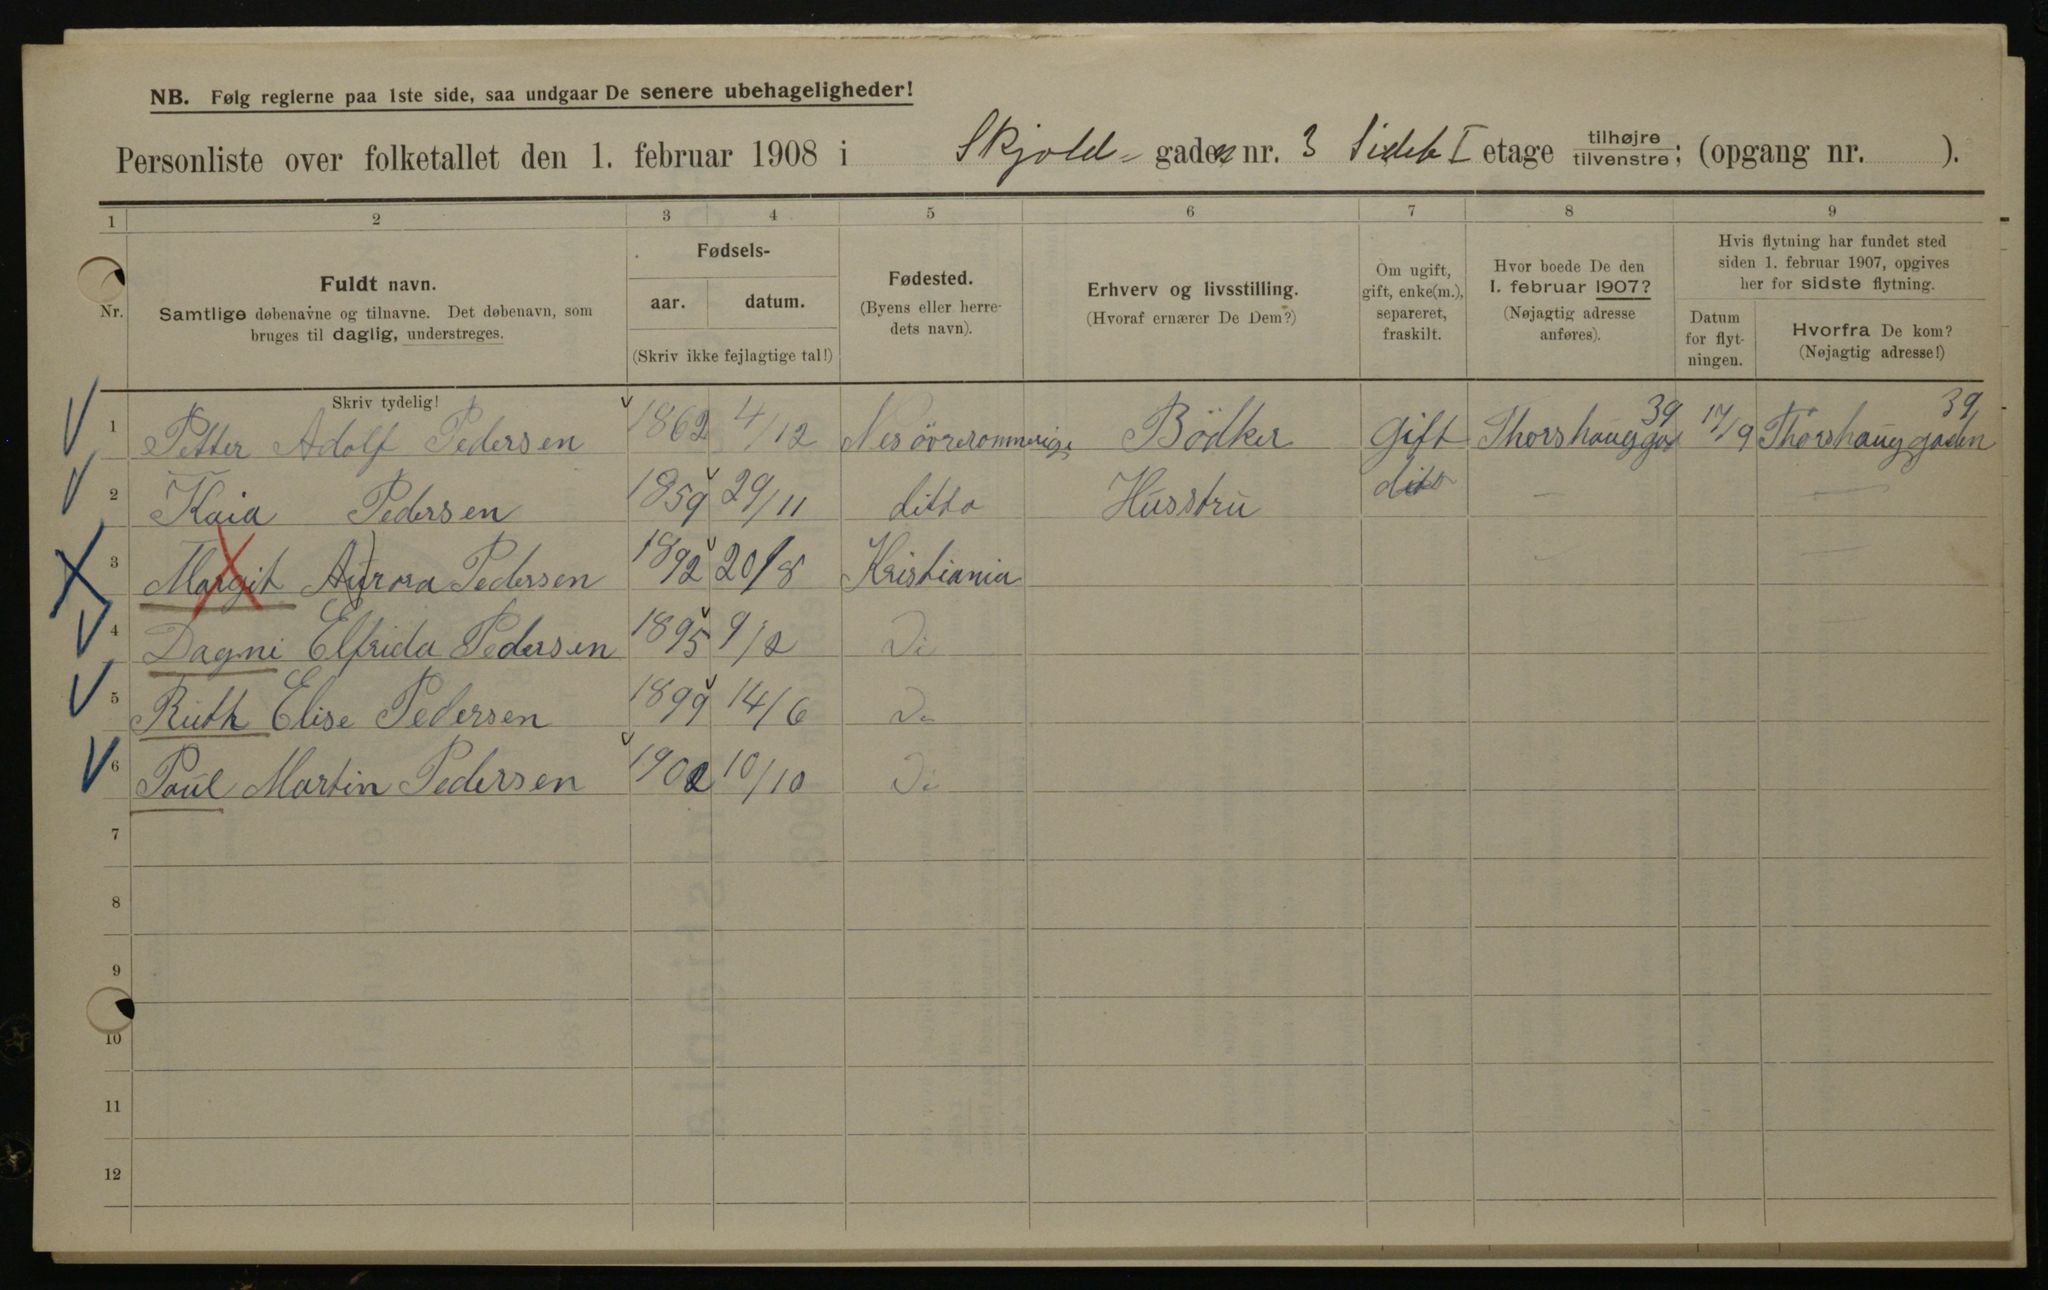 NB. Følg reglerne paa 1ste side, saa undgaar De senere ubehageligheder!
Personliste over folketallet den 1. februar 1908 i Skjold- gaden nr. 3 I etage tilhøjre tilvenstre; (opgang nr. ).
1 2 3 4 5 6 7 8 9
Nr.
Fuldt navn.
Samtlige døbenavne og tilnavne. Det døbenavn, som
bruges til daglig, understreges.
Skriv tydelig!
Fødsels-
aar. datum.
(Skriv ikke fejlagtige tal!)
Fødested.
(Byens eller herre-
dets navn).
Erhverv og livsstilling.
(Hvoraf ernærer De Dem?)
Om ugift,
gift, enke(m.),
separeret,
fraskilt.
Hvor boede De den
1. februar 1907?
(Nøjagtig adresse
anføres).
Hvis flytning har fundet sted
siden 1. februar 1907, opgives
her for sidste flytning.
Datum
for flyt-
ningen.
Hvorfra De kom?
(Nøjagtig adresse!)
1 Petter Adolf Pedersen 1862 4/12 Nes Bödker Gift Thorshauggad 39 17/9 Thorshauggaden 39
2 Kaia Pedersen 1859 29/11 ditto Husstru ditto — —
3 Margit Aurora Pedersen 1892 20/8 Kristiania — —
4 Dagni Elfrida Pedersen 1895 9/2 Do —
5 Ruth Elise Pedersen 1899 14/6 Do
6 Paul Martin Pedersen 1902 10/10 Do
7
8
9
10
11
12